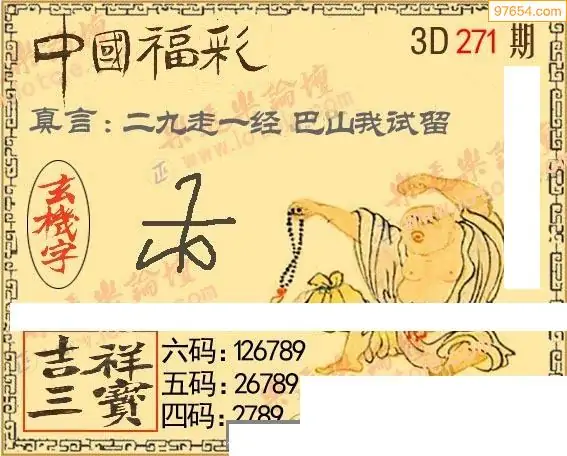 97654.com
中國福彩
3D 271 期
真言：二九走一经 巴山我试留
玄機字
吉祥三寶
六码：126789
五码：26789
四码：2789